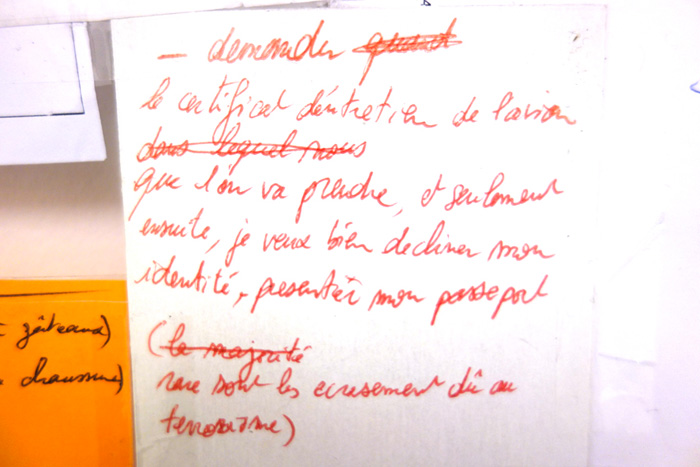 – demander quand
le certificat d'entretien de l'avion
dans lequel nous
que l'on va prendre, et seulement
ensuite, je veux bien decliner mon
identité, presenter mon passeport
(la majorité
rare sont les ecrasement dû au
terrorisme)
gâteaux)
chaussure)